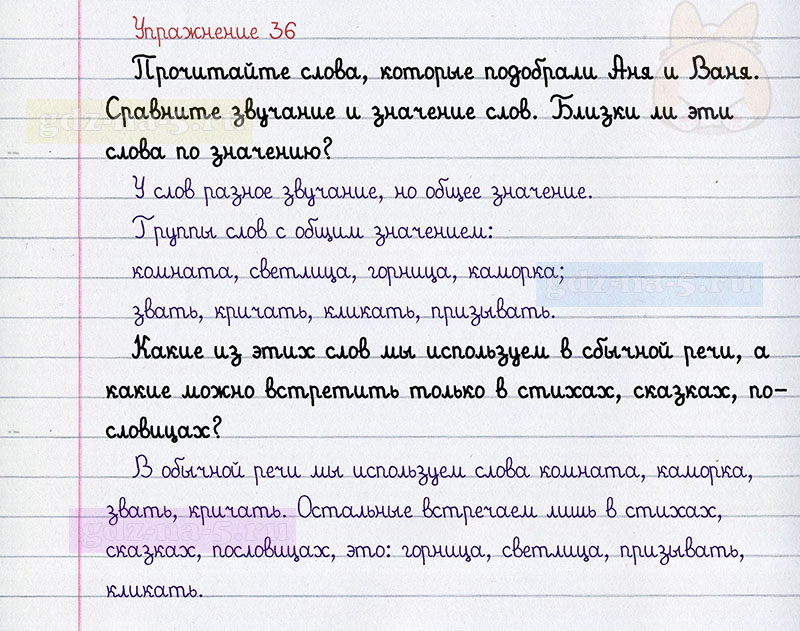 Упражнение 36
Прочитайте слова, которые подобрали Аня и Ваня.
gdz-na-5.ru
Сравните звучание и значение слов. Близки ли эти
слова по значению?
У слов разное звучание, но общее значение.
Группы слов с общим значением:
комната, светлица, горница, каморка;
gdz-na-5.ru
звать, кричать, кликать, призывать.
Какие из этих слов мы используем в сбычной речи, а
какие можно встретить только в стихах, сказках, по-
словицах?
В обычной речи мы используем слова комната, каморка,
звать, кричать. Остальные встречаем лишь в стихах,
gdz-na-5.ru
сказках, пословицах, это: горница, светлица, призывать,
кликать.